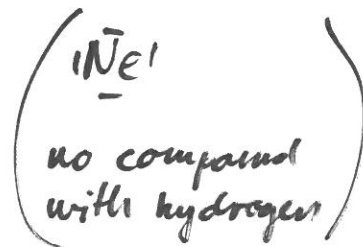 (Ne
no compound
with hydrogen)